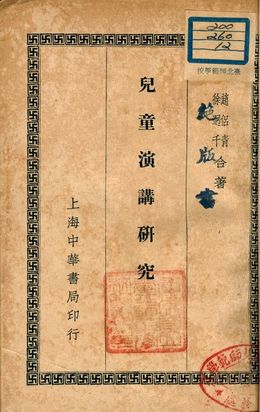 200
260
12
臺北師範學校
趙侶青
徐迥千
合著
絶版書
兒童演講研究
上海中華書局印行